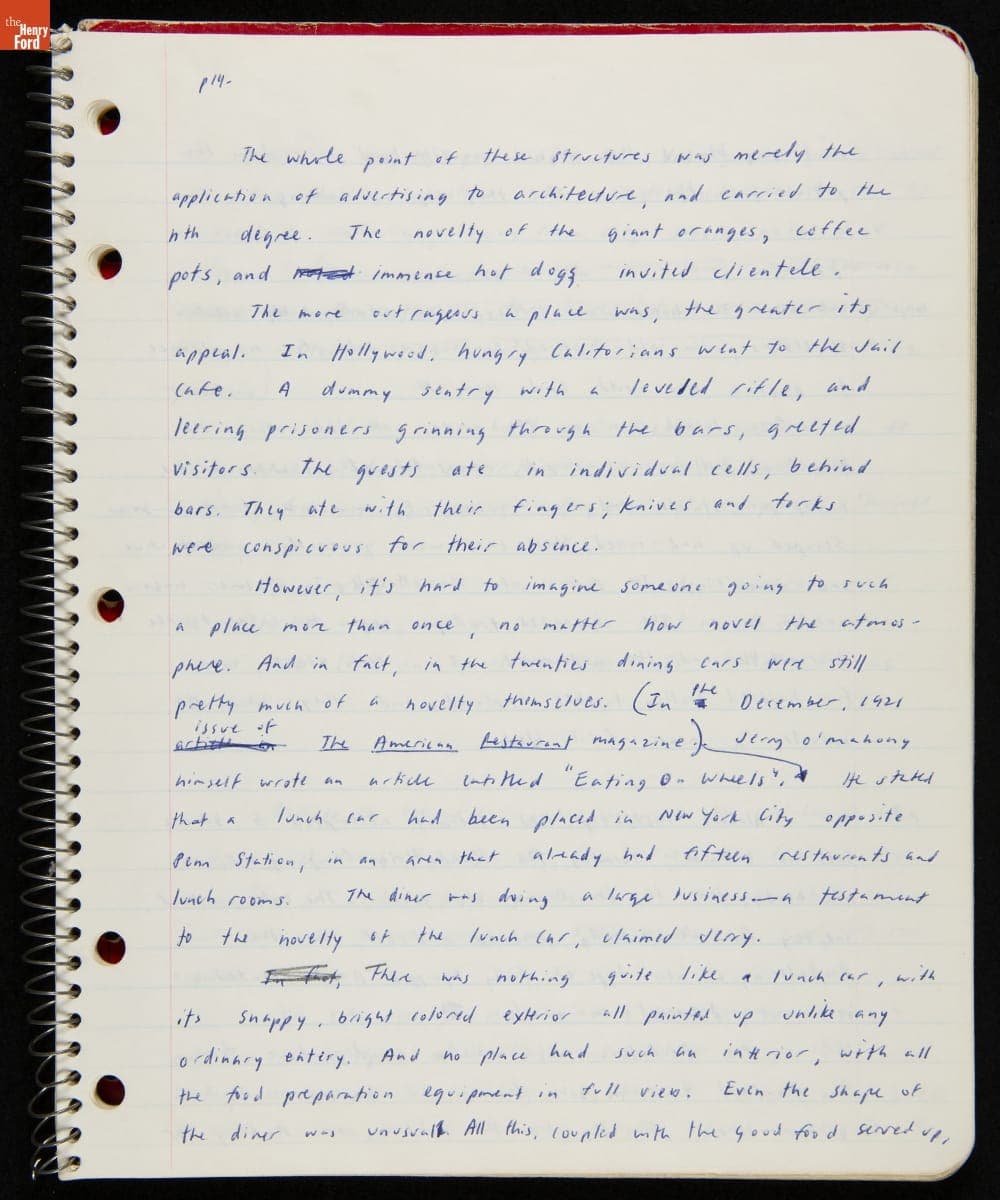 the
Henry
Ford
p14-
The whole point of these structures was merely the
application of advertising to architecture, and carried to the
nth degree. The novelty of the giant oranges, coffee
pots, and immense hot dogs invited clientele.
The more outrageous a place was, the greater its
appeal. In Hollywood, hungry Califorians went to the Jail
Cafe. A dummy sentry with a leveled rifle, and
leering prisoners grinning through the bars, greeted
visitors. The guests ate in individual cells, behind
bars. They ate with their fingers; knives and forks
were conspicuous for their absence.
However, it's hard to imagine someone going to such
a place more than once, no matter how novel the atmos-
phere. And in fact, in the twenties dining cars were still
pretty much of a novelty themselves. (In the December, 1921
issue of
article in The American Restaurant magazine) Jerry O'Mahony
himself wrote an article entitled "Eating On Wheels". He stated
that a lunch car had been placed in New York City opposite
Penn Station, in an area that already had fifteen restaurants and
lunch rooms. The diner was doing a large business—a testament
to the novelty of the lunch car, claimed Jerry.
In fact, There was nothing quite like a lunch car, with
its snappy, bright colored exterior all painted up unlike any
ordinary eatery. And no place had such an interior, with all
the food preparation equipment in full view. Even the shape of
the diner was unusual. All this, coupled with the good food served up,